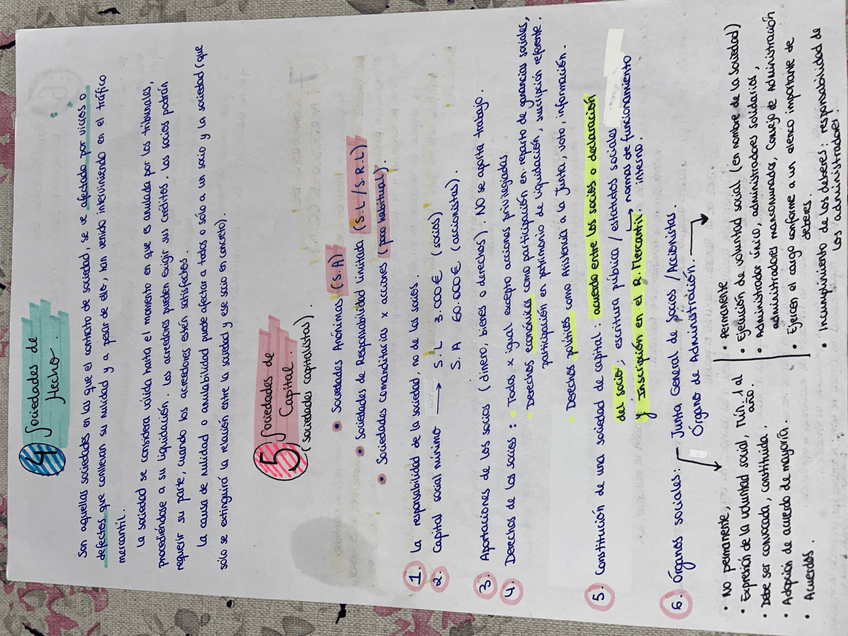 4 Sociedades de
Hecho.
Son aquellas sociedades en las que el contrato de sociedad, se ve afectado por vicios o
defectos que conllevan su nulidad y a pesar de ello, han venido interviniendo en el tráfico
mercantil.
La sociedad se considera válida hasta el momento en que es anulada por los tribunales,
procediéndose a su liquidación. Los acreedores pueden exigir sus créditos. Los socios podrán
requerir su parte, cuando los acreedores estén satisfechos.
La causa de nulidad o anulabilidad puede afectar a todos o sólo a un socio y la sociedad (que
sólo se extinguirá la relación entre la sociedad y ese socio en concreto).
5 Sociedades de
Capital.
(Sociedades capitalistas).
• Sociedades Anónimas (S.A)
• Sociedades de Responsabilidad limitada (S.L / S.R.L)
• Sociedades comanditarias x acciones (poco habitual).
1. La responsabilidad de la sociedad, no de los socios.
2. Capital social mínimo → S.L 3.000€ (socios)
S.A 60.000€ (accionistas).
3. Aportaciones de los socios (dinero, bienes o derechos). NO se aporta trabajo.
4. Derechos de los socios: • Todos x igual excepto acciones privilegiadas
• Derechos económicos como participación en reparto de ganancias sociales,
participación en patrimonio de liquidación, suscripción preferente.
• Derechos políticos como asistencia a la Junta, voto, información.
5. Constitución de una sociedad de capital: acuerdo entre los socios o declaración
del socio; escritura pública / estatutos sociales
y Inscripción en el R. Mercantil. → normas de funcionamiento
interno.
6. Órganos sociales: Junta General de Socios / Accionistas.
Órgano de Administración.
• No permanente,
• Expresión de la voluntad social, mín. 1 al
año.
• Debe ser convocada, constituida.
• Adopción de acuerdo de mayoría.
• Acuerdos.
• Permanente
• Ejecución de voluntad social (en nombre de la Sociedad)
• Administrador único, administradores solidarios,
administradores mancomunados, Consejo de Administración
• Ejercen el cargo conforme a un elenco importante de
deberes.
• Incumplimiento de los deberes: responsabilidad de
los administradores.